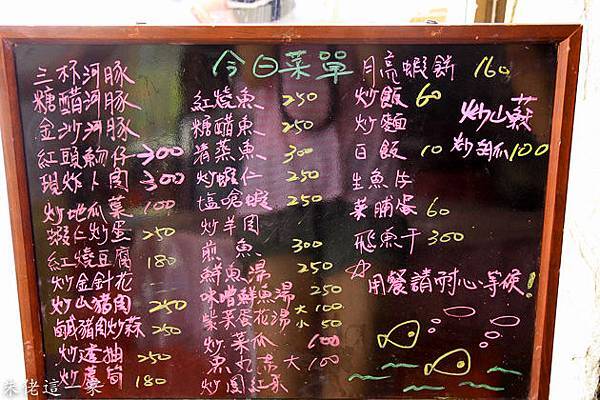 今日菜單
三杯河豚
糖醋河豚
金沙河豚
紅頭魩仔 300
現炸卜肉 300
炒地瓜菜 100
蝦仁炒蛋 250
紅燒豆腐 180
炒金針花
炒山豬肉 250
鹹豬肉炒蒜 250
炒 250
炒 筒 180
紅燒魚 250
糖醋魚 250
清蒸魚 300
炒蝦仁 250
塩嗆蝦 250
炒羊肉
煎魚 300
鮮魚湯 250
味噌鮮魚湯 250
紫菜蛋花湯 大 100
小 50
炒菜瓜 100
魚丸 大 100
炒
月亮蝦餅 160
炒飯 60
炒麵
白飯 10
生魚片
菜脯蛋 60
飛魚干 300
炒山蘇
炒 100
☆用餐請耐心等候!
朱佬這